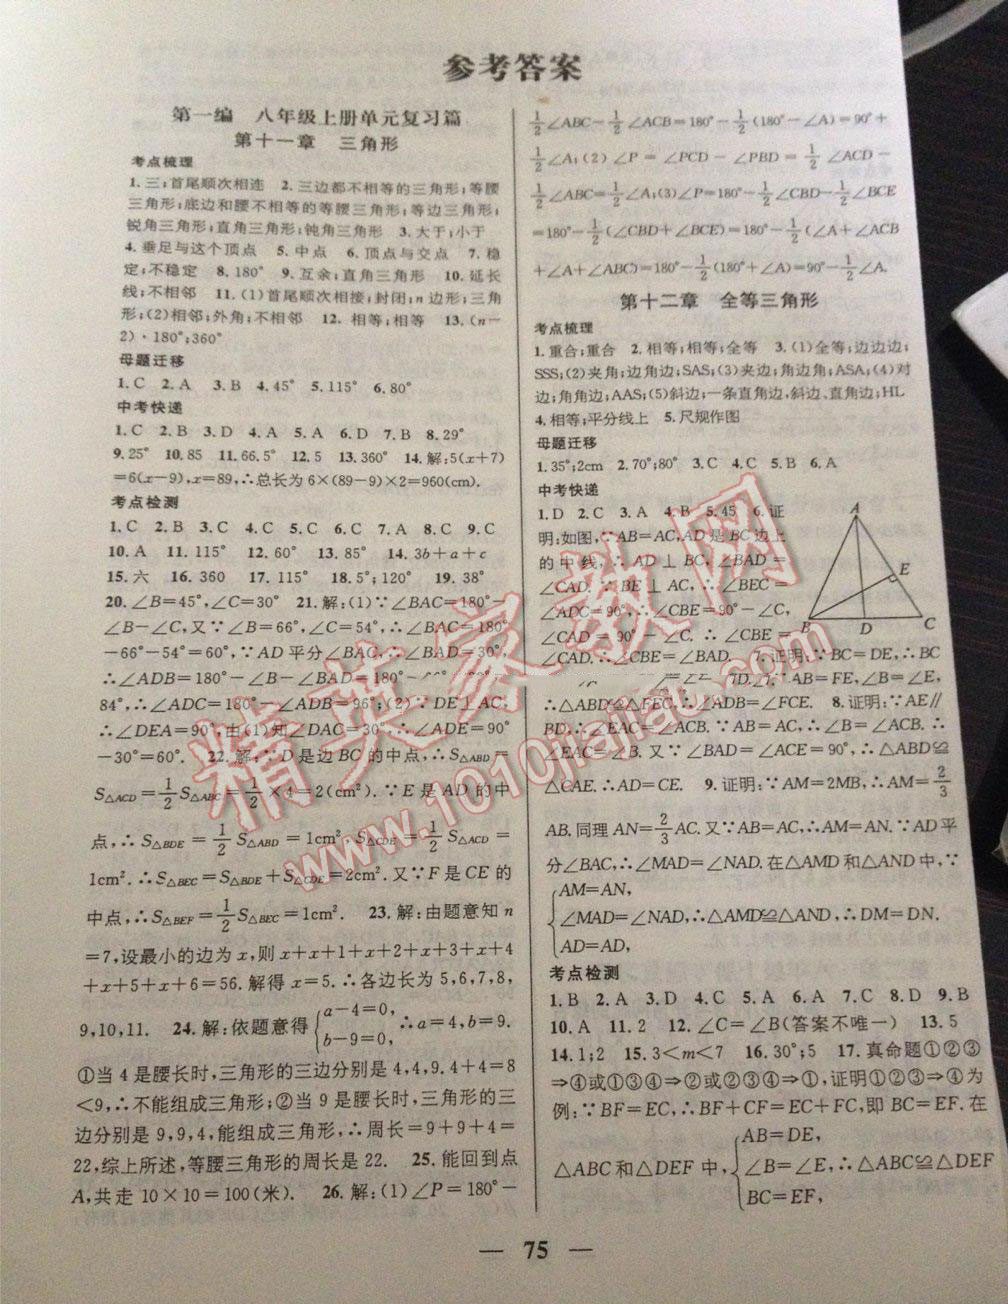 参考答案
第一编 八年级上册单元复习篇
第十一章 三角形
考点梳理
1.三;首尾顺次相连 2.三边都不相等的三角形;等腰
三角形;底边和腰不相等的等腰三角形;等边三角形;
锐角三角形;直角三角形;钝角三角形 3.大于;小于
4.垂足与这个顶点 5.中点 6.顶点与交点 7.稳
定;不稳定 8.180° 9.互余;直角三角形 10.延长
线;不相邻 11.(1)首尾顺次相接;封闭;n边形;三角
形;(2)相邻;外角;不相邻 12.相等;相等 13.(n-
2)·180°;360°
母题迁移
1.C 2.A 3.B 4.45° 5.115° 6.80°
中考快递
1.C 2.B 3.D 4.A 5.A 6.D 7.B 8.29°
9.25° 10.85 11.66.5° 12.5 13.360° 14.解:5(x+7)
=6(x-9),x=89,∴总长为6×(89-9)×2=960(cm).
考点检测
1.C 2.B 3.C 4.C 5.C 6.C 7.A 8.C 9.C
10.A 11.115° 12.60° 13.85° 14.3b+a+c
15.六 16.360 17.115° 18.5°;120° 19.38°
20.∠B=45°,∠C=30° 21.解:(1)∵∠BAC=180°-
∠B-∠C,又∵∠B=66°,∠C=54°,∴∠BAC=180°
-66°-54°=60°,∵AD平分∠BAC,∴∠BAD=30°,
∴∠ADB=180°-∠B-∠BAD=180°-
84°,∴∠ADC=180°-∠ADB=96°;(2)∵DE⊥AC,
∴∠DEA=90°,由(1)知∠DAC=30°,∴∠ADE=90°
-30°=60°. 22.解:∵D是边BC的中点,∴S△ABD=
S△ACD=1/2S△ABC=1/2×4=2(cm²).∵E是AD的中
点,∴S△BDE=1/2S△ABD=1cm²,S△CDE=1/2S△ACD=
1cm².∴S△BEC=S△BDE+S△CDE=2cm².又∵F是CE的
中点,∴S△BEF=1/2S△BEC=1cm². 23.解:由题意知n
=7,设最小的边为x,则x+x+1+x+2+x+3+x+4
+x+5+x+6=56.解得x=5.∴各边长为5,6,7,8,
9,10,11. 24.解:依题意得{a-4=0, b-9=0, ∴a=4,b=9.
①当4是腰长时,三角形的三边分别是4,4,9.4+4=8
<9,∴不能组成三角形;②当9是腰长时,三角形的三
边分别是9,9,4,能组成三角形,∴周长=9+9+4=
22,综上所述,等腰三角形的周长是22. 25.能回到点
A,共走10×10=100(米). 26.解:(1)∠P=180°-
1/2∠ABC-1/2∠ACB=180°-1/2(180°-∠A)=90°+
1/2∠A;(2)∠P=∠PCD-∠PBD=1/2∠ACD-
1/2∠ABC=1/2∠A;(3)∠P=180°-1/2∠CBD-1/2∠BCE
=180°-1/2(∠CBD+∠BCE)=180°-1/2(∠A+∠ACB
+∠A+∠ABC)=180°-1/2(180°+∠A)=90°-1/2∠A.
第十二章 全等三角形
考点梳理
1.重合;重合 2.相等;相等;全等 3.(1)全等;边边边;
SSS;(2)夹角;边角边;SAS;(3)夹边;角边角;ASA;(4)对
边;角角边;AAS;(5)斜边;一条直角边,斜边、直角边;HL
4.相等;平分线上 5.尺规作图
母题迁移
1.35°;2cm 2.70°;80° 3.C 4.C 5.B 6.A
中考快递
1.D 2.C 3.A 4.B 5.45 6.证
明:如图,∵AB=AC,AD是BC边上
的中线,∴AD⊥BC,∠BAD=
∠CAD.∵BE⊥AC,∴∠BEC=
∠ADC=90°,∴∠CBE=90°-∠C,
∠CAD=90°-∠C.∴∠CBE=
∠CAD.∴∠CBE=∠BAD. 7.证明:∵BC=DE,∴BC
AB=FE,∠B=∠E,
∴△ABD≌△FEC,∴∠ADB=∠FCE. 8.证明:∵AE∥
BD,∴∠EAC=∠ACB.∵AB=AC,∴∠B=∠ACB.∴
∠EAC=∠B.又∵∠BAD=∠ACE=90°,∴△ABD≌
△CAE.∴AD=CE. 9.证明:∵AM=2MB,∴AM=2/3
AB.同理AN=2/3AC.又∵AB=AC,∴AM=AN.∵AD平
分∠BAC,∴∠MAD=∠NAD.在△AMD和△AND中,∵
{AM=AN,
∠MAD=∠NAD,∴△AMD≌△AND,∴DM=DN.
AD=AD,
考点检测
1.B 2.A 3.D 4.C 5.A 6.A 7.C 8.D 9.B
10.A 11.2 12.∠C=∠B(答案不唯一) 13.5
14.1;2 15.3<m<7 16.30°;5 17.真命题①②③
⇒④或①③④⇒②或②③④⇒①,证明①②③⇒④为
例:∵BF=EC,∴BF+CF=EC+FC,即BC=EF.在
△ABC和△DEF中,{AB=DE, ∠B=∠E, BC=EF, ∴△ABC≌△DEF
A
E
B
D
C
精英家教网
www.1010jiajiao.com
— 75 —